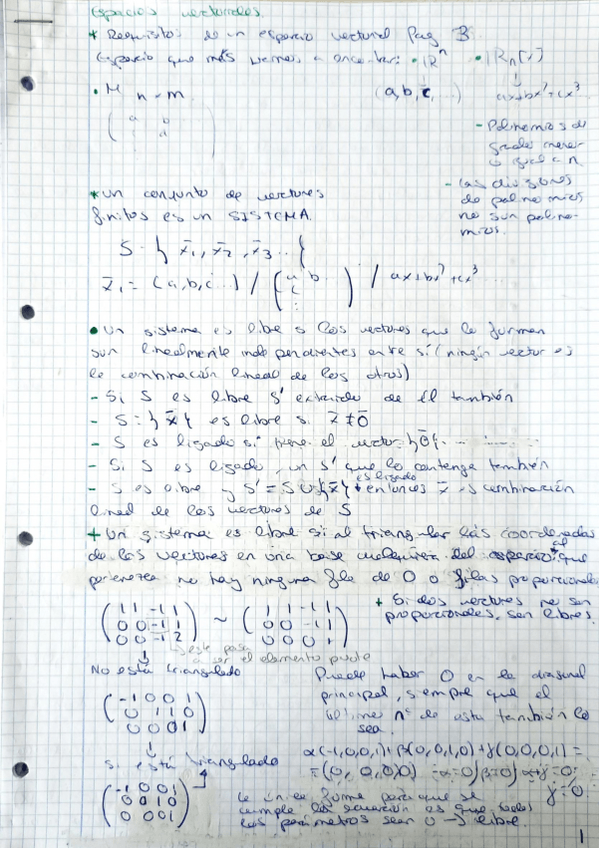 Espacios vectoriales
* Requisitos de un espacio vectorial Pag 3.
Espacio que más vamos a encontar: • ℝⁿ • ℝn[x]
• M n×m (a, b, c, ...) ax+bx²+cx³
- Polinomios de
grado menor
o igual a n.
- Las divisiones
de polinomios
no son polino-
mios.
* Un conjunto de vectores
finitos es un SISTEMA.
S = { x̄₁, x̄₂, x̄₃ ... {
x̄₁ = (a, b, c ...) / (a b c ⋮) / ax+bx²+cx³ ...
• Un sistema es libre si los vectores que lo forman
son linealmente independientes entre sí (ningún vector es
la combinación lineal de los otros)
- Si S es libre S' extraido de él también
- S = { x̄ { es libre si x̄ ≠ 0̄
- S es ligado si tiene el vector {0̄{
- Si S es ligado, un S' que lo contenga también
- S es libre y S' = S ∪ {x̄{ es ligado entonces x̄ es combinación
lineal de los vectores de S
+ Un sistema es libre si al triangular las coordenadas
de los vectores en una base cualquiera del espacio al que
pertenezca no hay ninguna fila de 0 o filas proporcionales
+ Si dos vectores no son
proporcionales, son libres.
(1 1 -1 1
0 0 -1 1
0 0 -1 2) ~ (1 1 -1 1
0 0 -1 1
0 0 0 1)
→ este pasa
a ser el elemento pivote
No está triangulado
Puede haber 0 en la diagonal
principal, siempre que el
último nº de esta también lo
sea.
(-1 0 0 1
0 1 1 0
0 0 0 1)
si está triangulado
α(-1,0,0,1)+β(0,0,1,0)+γ(0,0,0,1) =
= (0, 0, 0, 0) -α=0; β=0; α+γ=0;
γ=0
(-1 0 0 1
0 0 1 0
0 0 0 1)
La única forma para que se
cumpla la ecuación es que todos
los parámetros sean 0 → libre.
1